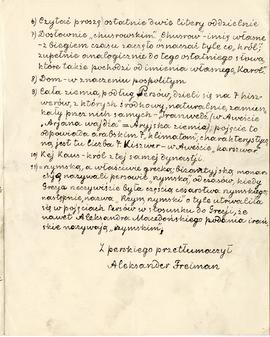 6) Czytać proszę ostatnie dwie litery oddzielnie
7) Dosłownie „chusrowskim". Chusrow - imię własne
- z biegiem czasu zaczęło oznaczać tyle co „król",
zupełnie analogicznie do tego ostatniego słowa,
które także pochodzi od imienia własnego „Karol".
8) Dom - w znaczeniu pospolitym
9) Cała ziemia, podług Persów, dzieli się na 7 kisz-
werów, z których środkowy, naturalnie, zamiesz-
kały przez nich samych - „Iranwedż" (w Aweście
„Arjana waejdża" = Aryjska ziemia); pojęcie to
odpowiada arabskim 7 „klimatom"; charakterysty-
ną jest tu liczba 7. Kiszwer - w Aweście, karszwar
10) Kej Kaus - król z tej samej dynastji.
11) rzymską, a właściwie grecką; bizantyjską monar-
chję nazywali Persowie „rzymską", od czasów, kiedy
Grecja rzeczywiście była częścią cesarstwa rzymskiego;
następnie, nazwa „Rzym, rzymski" o tyle utrwaliła
się w pojęciach Persów w stosunku do Grecji, że
nawet Aleksandra Macedońskiego podania irań-
skie nazywają „rzymskim".
Z perskiego przetłumaczył
Aleksander Freiman